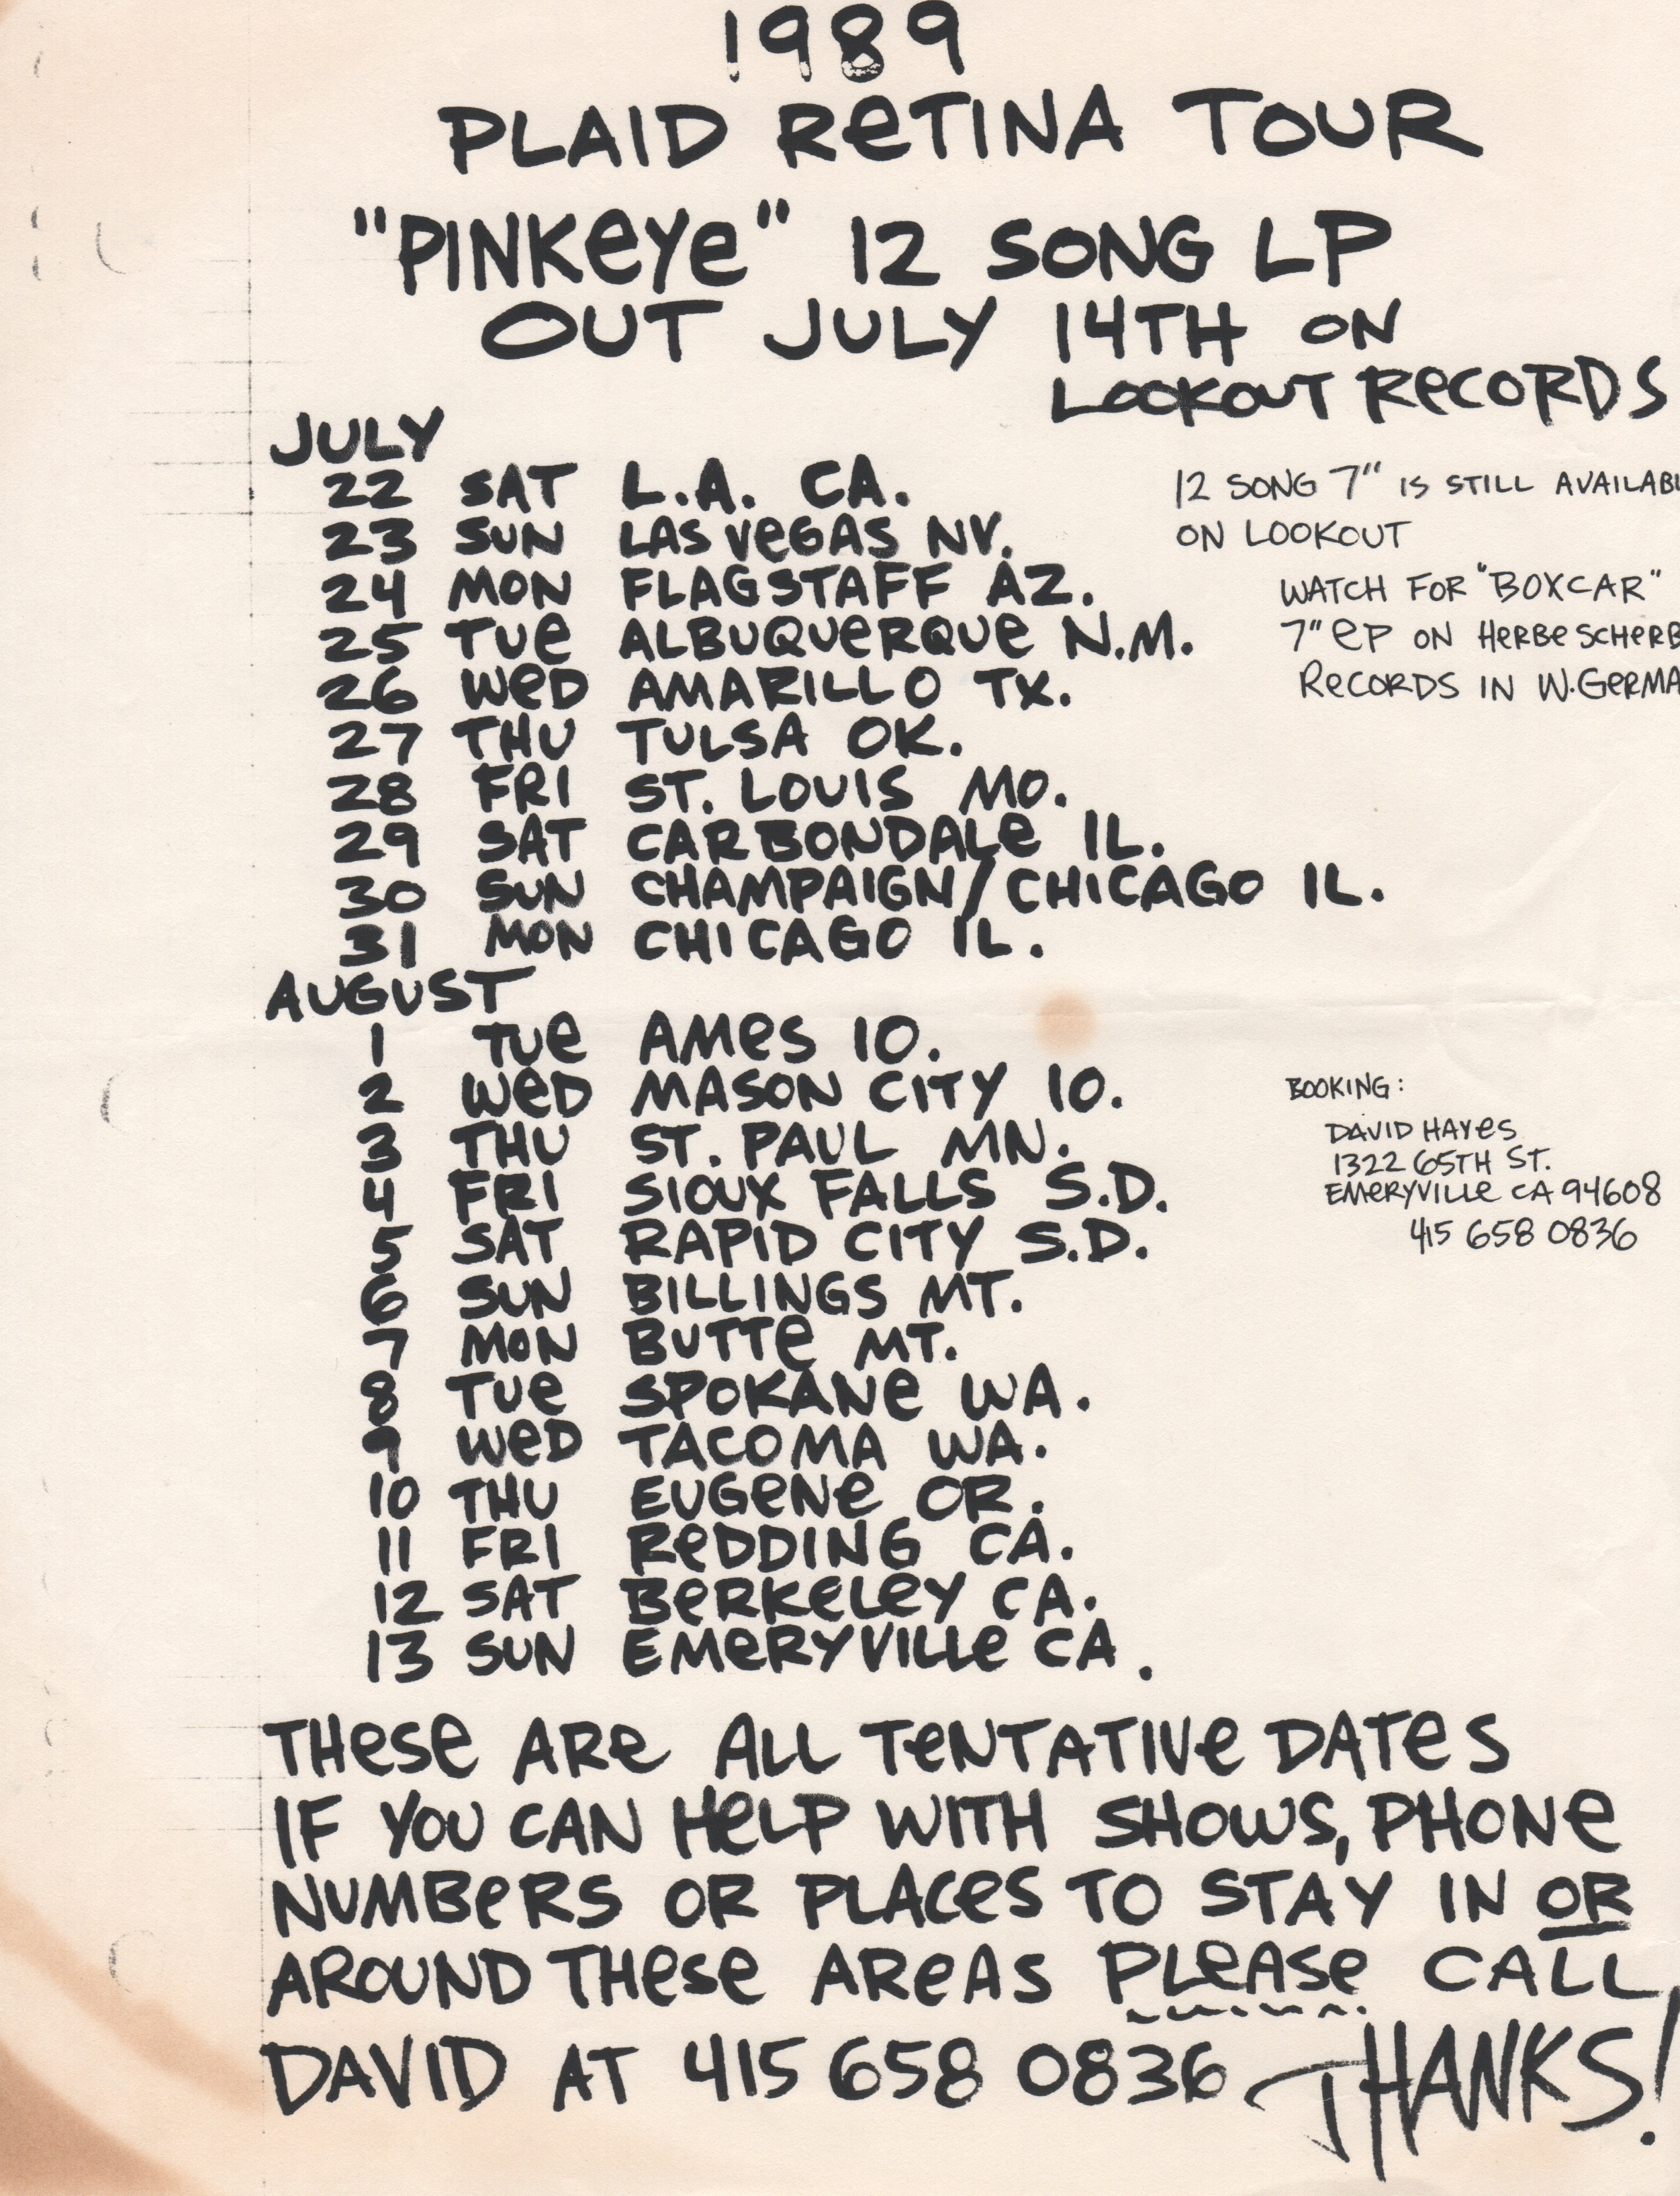 1989
PLAID ReTINA TOUR
"PINKeYe" 12 SONG LP
OUT JULY 14TH ON
LOOKOUT ReCORDS
JULY
22 SAT L.A. CA.
23 SUN LAS VeGAS NV.
24 MON FLAGSTAFF AZ.
25 TUe ALBUQUeRQUe N.M.
26 WeD AMARILLO TX.
27 THU TULSA OK.
28 FRI ST. LOUIS MO.
29 SAT CARBONDALe IL.
30 SUN CHAMPAIGN/CHICAGO IL.
31 MON CHICAGO IL.
12 SONG 7" IS STILL AVAILABL
ON LOOKOUT
WATCH FOR "BOXCAR"
7" eP ON HeRBe SCHeRB
ReCORDS IN W.GeRMA
AUGUST
1 TUe AMes IO.
2 WeD MASON CITY IO.
3 THU ST. PAUL MN.
4 FRI SIOUX FALLS S.D.
5 SAT RAPID CITY S.D.
6 SUN BILLINGS MT.
7 MON BUTTe MT.
8 TUe SPOKANe WA.
9 WeD TACOMA WA.
10 THU EUGeNe OR.
11 FRI ReDDING CA.
12 SAT BeRKeLeY CA.
13 SUN EMeRYVILLe CA.
BOOKING:
DAVID HAYes
1322 65TH ST.
EMeRYVILLe CA 94608
415 658 0836
THese ARe ALL TeNTATIVe DATes
IF YOU CAN HeLP WITH SHOWS, PHONe
NUMBeRS OR PLACes TO STAY IN OR
AROUND THese AReAS PLeASe CALL
DAVID AT 415 658 0836 THANKS!